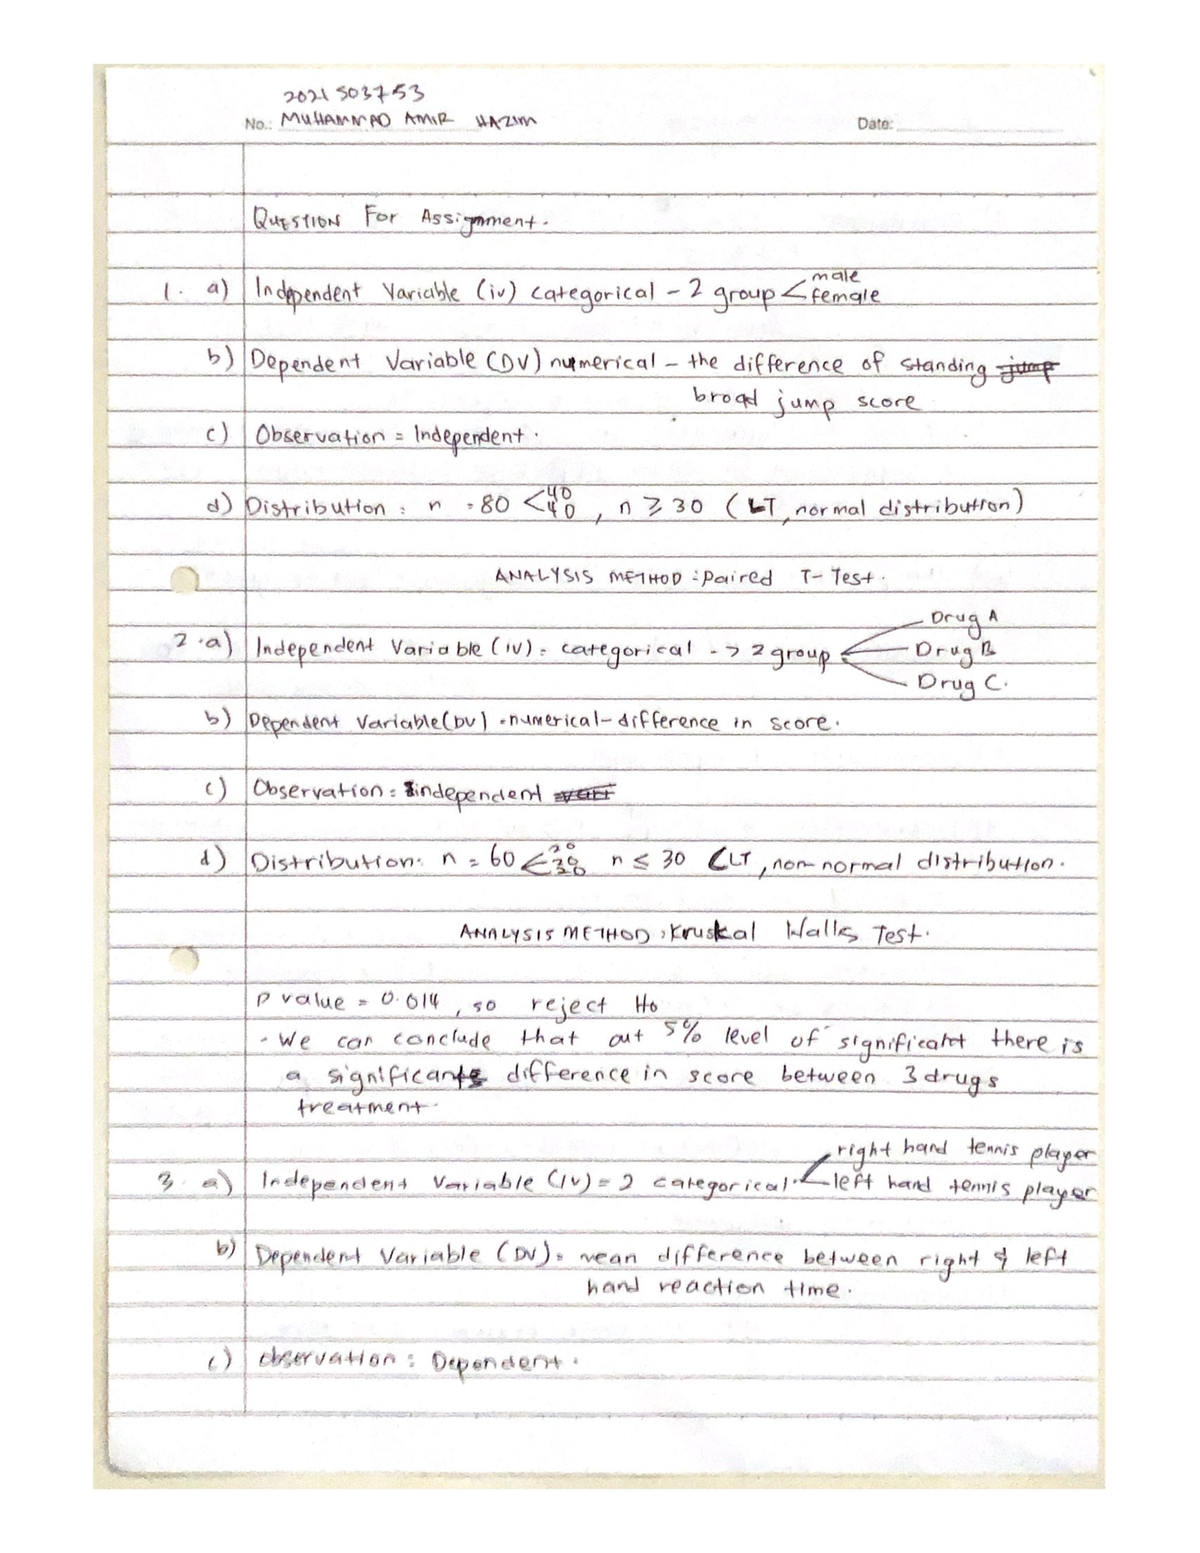 2021503753
No.: MUHAMMAD AMIR HAZIM Date:
QUESTION For Assignment.
1. a) Independent Variable (iv) categorical - 2 group < male
female
b) Dependent Variable (DV) numerical - the difference of standing jump
broad jump score
c) Observation = Independent.
d) Distribution : n = 80 < 40
40 , n ≥ 30 (LT, normal distribution)
ANALYSIS METHOD : paired T-Test.
2. a) Independent Variable (iv) = categorical -> 2 group
Drug A
Drug B
Drug C.
b) Dependent Variable (DV) = numerical - difference in score.
c) Observation : independent
d) Distribution: n = 60 < 20
20
20 n ≤ 30 CLT, non normal distribution.
ANALYSIS METHOD : Kruskal Walls Test.
P value = 0.014, so reject Ho
- We can conclude that out 5% level of significant there is
a significant difference in score between 3 drugs
treatment.
3. a) Independent Variable (IV) = 2 categorical
right hand tennis player
left hand tennis player
b) Dependent Variable (DV) = mean difference between right & left
hand reaction time.
c) observation : Dependent.